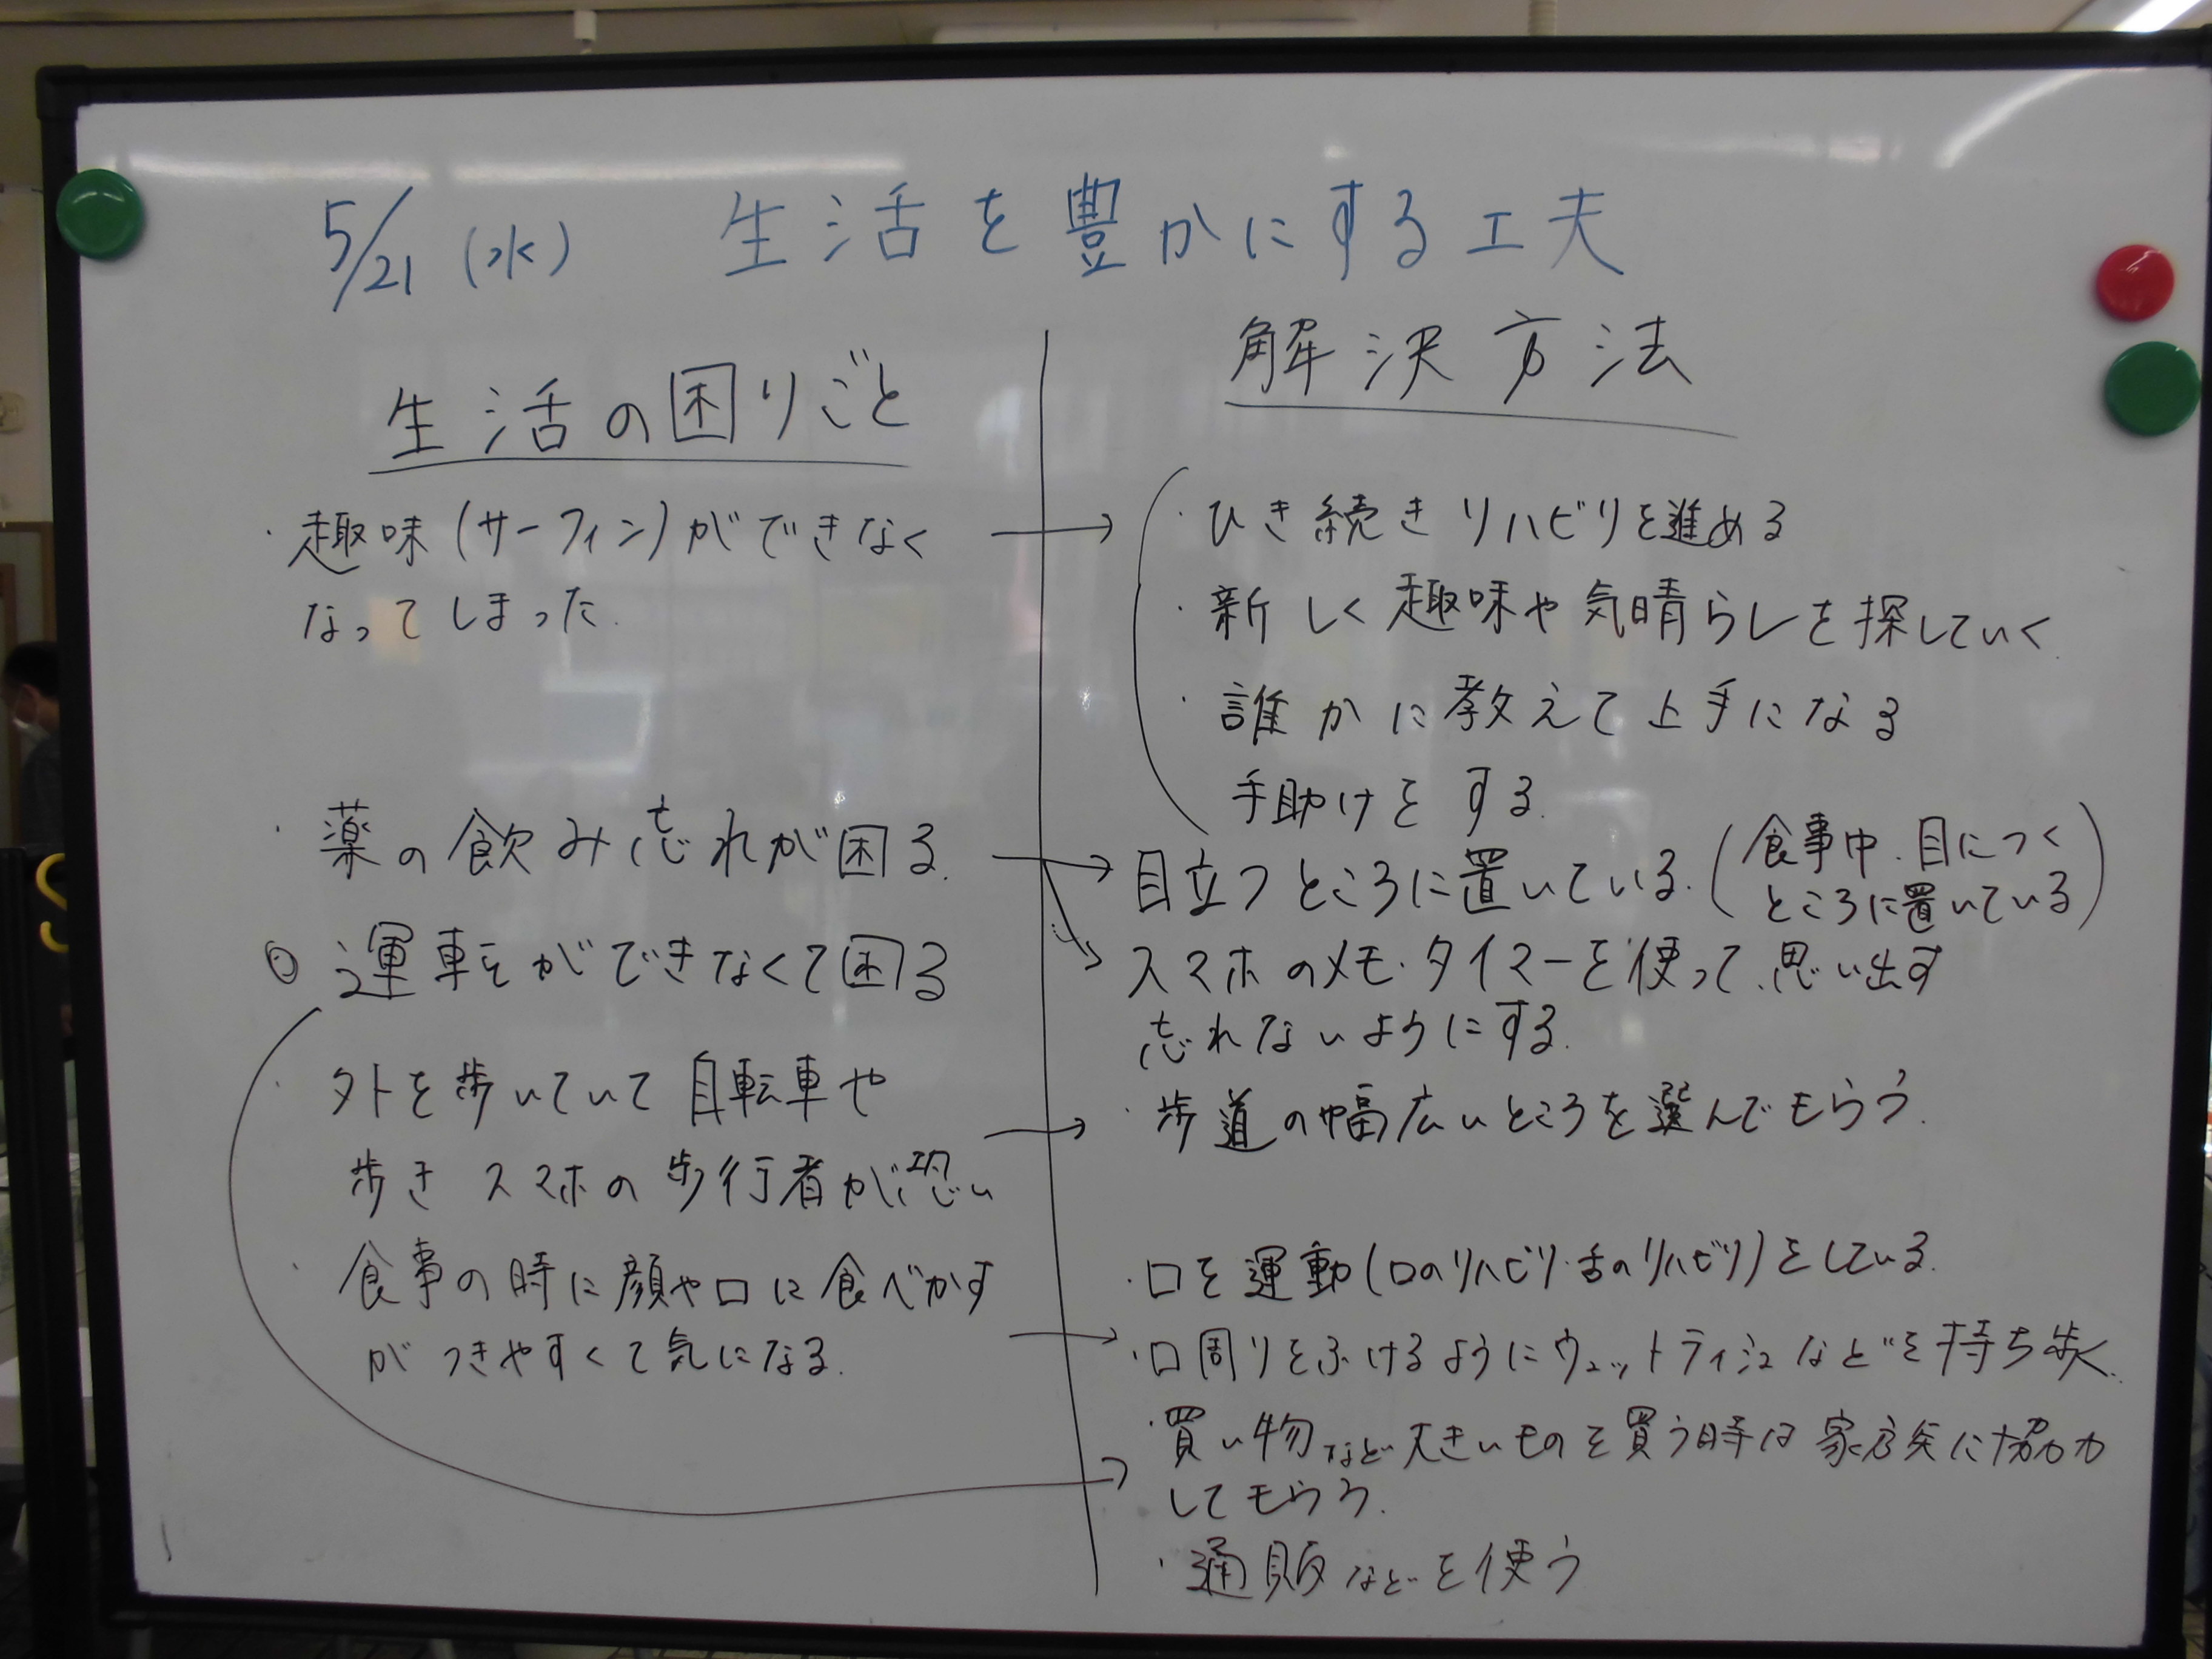 5/21 (水) 生活を豊かにする工夫
生活の困りごと
・趣味(サーフィン)ができなく
なってしまった.
・薬の飲み忘れが困る.
◎運転ができなくて困る
・外を歩いていて自転車や
歩きスマホの歩行者が恐い
・食事の時に顔や口に食べかす
がつきやすくて気になる.
解決方法
・ひき続きリハビリを進める
・新しく趣味や気晴らしを探していく.
・誰かに教えて上手になる
手助けをする.
目立つところに置いている.(食事中、目につく
ところに置いている)
スマホのメモ・タイマーを使って、思い出す
忘れないようにする.
・歩道の幅広いところを選んでもらう.
・口を運動(口のリハビリ・舌のリハビリ)をしている.
・口周りをふけるようにウェットティシュなどを持ち歩く.
・買い物など大きいものを買う時は家族に協力
してもらう.
・通販などを使う